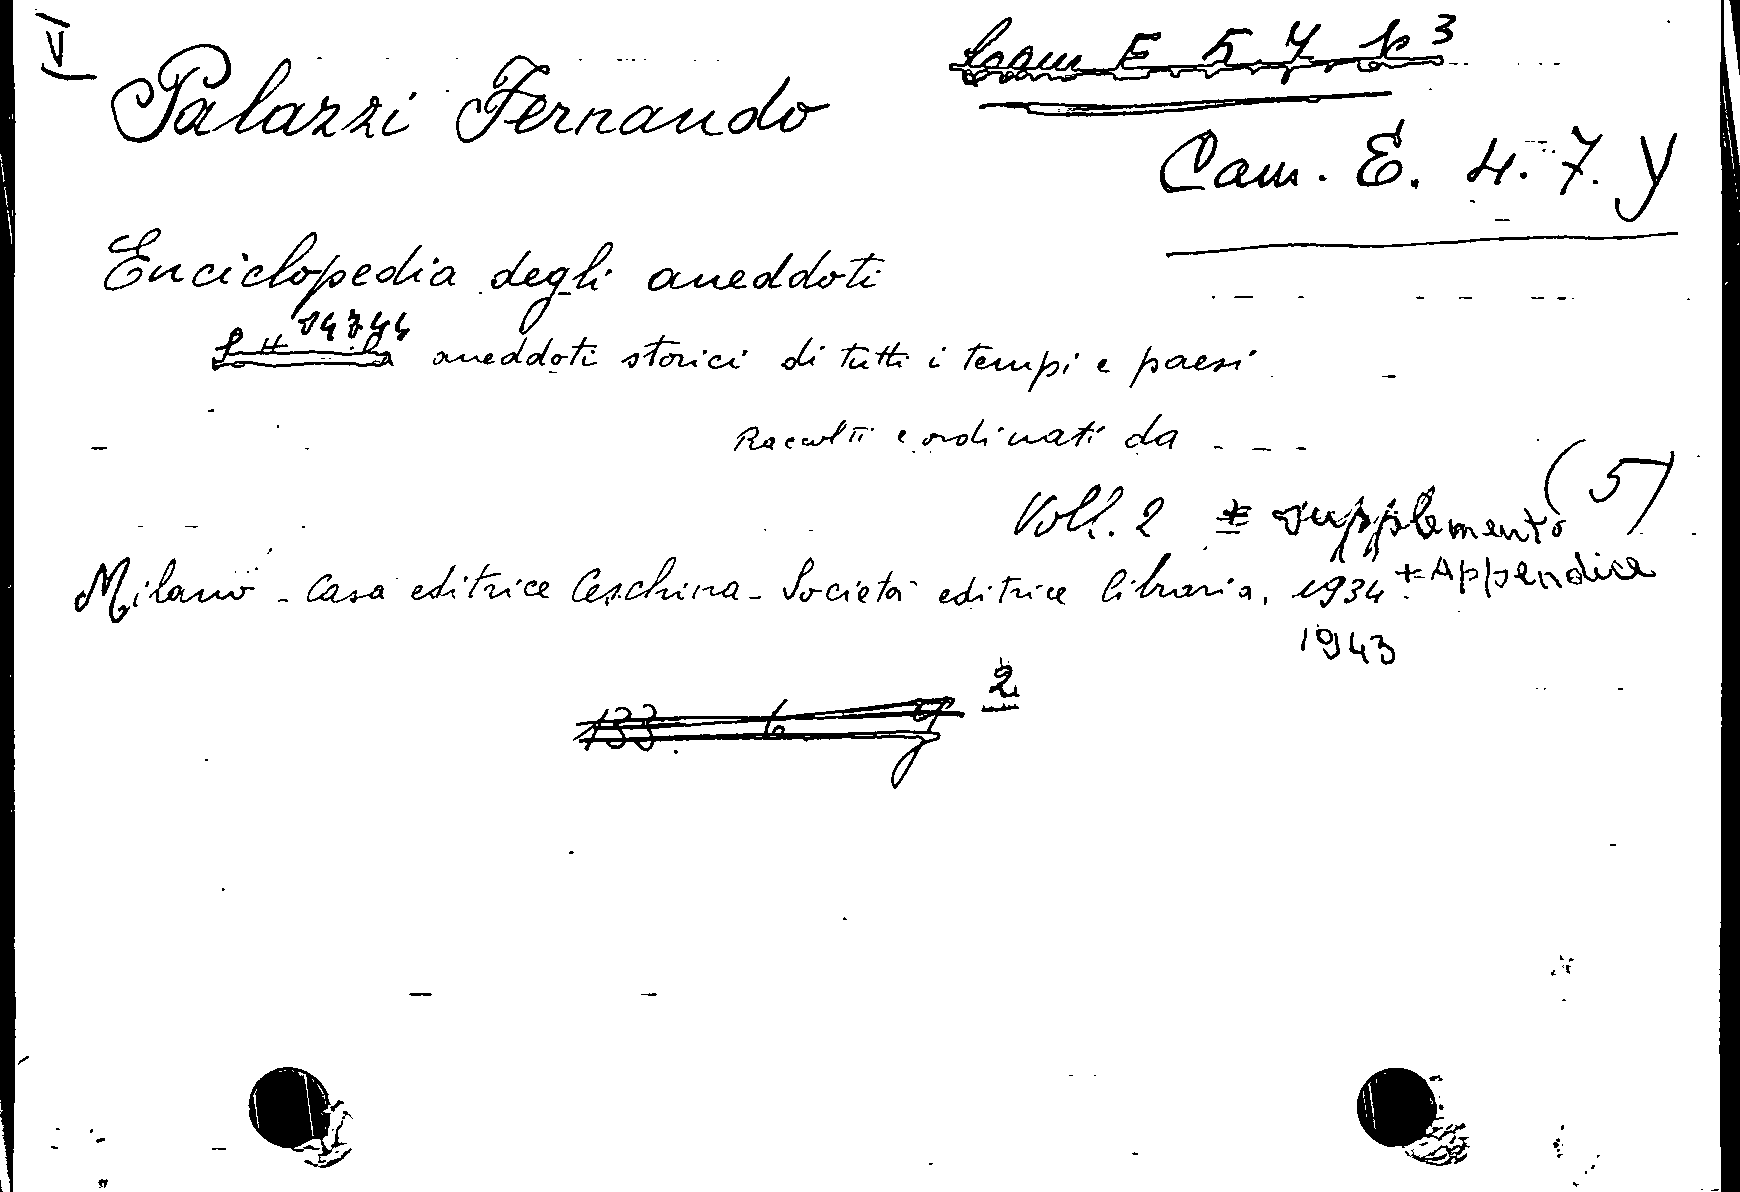 V
Cam E 5 7 p 3
Palazzi Fernando
Cam. E. 4. 7. y
Enciclopedia degli aneddoti
aneddoti storici di tutti i tempi e paesi
Raccolti e ordinati da - - -
(5)
Voll. 2 + supplemento
+ Appendice
Milano - Casa editrice Ceschina - Società editrice libraria, 1934.
1943
2
133 6